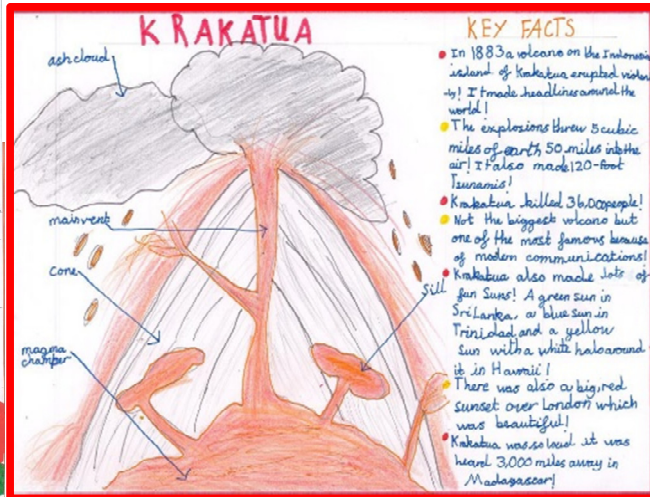 KRAKATUA
ash cloud
main vent
cone
magma
chamber
sill
KEY FACTS
In 1883 a volcano on the Indonesia
island of Krakatua erupted violen
-ly! It made headlines around the
world!
The explosions threw 5 cubic
miles of earth 50 miles into the
air! It also made 120-foot
Tsunamis!
Krakatua killed 36,000 people!
Not the biggest volcano but
one of the most famous because
of modern communications!
Krakatua also made lots of
fan Suns! A green sun in
Sri Lanka, a blue sun in
Trinidad and a yellow
sun with a white halo around
it in Hawaii!
There was also a big, red
sunset over London which
was beautiful!
Krakatua was so loud it was
heard 3,000 miles away in
Madagascar!